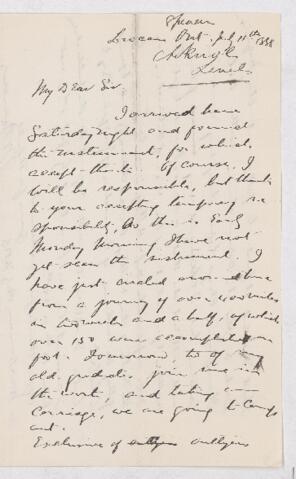 July 11th 1888
My Dear Sir.
I arrived here
Saturday night and found
the instrument, for which
accept thanks. Of course, I
will be responsible, but thanks
to your accepting temporary re
sponsibility, As this is Early
Monday Morning I have not
yet seen the instrument. I
have just ended
from a journey of over miles
in two weeks and a half, of which
over 150 was accomplished on
foot. Tomorrow, two of my
old graduates join me in
the work, and taking a
Carriage, we are going to camp
out.
Exclusive of outlyers